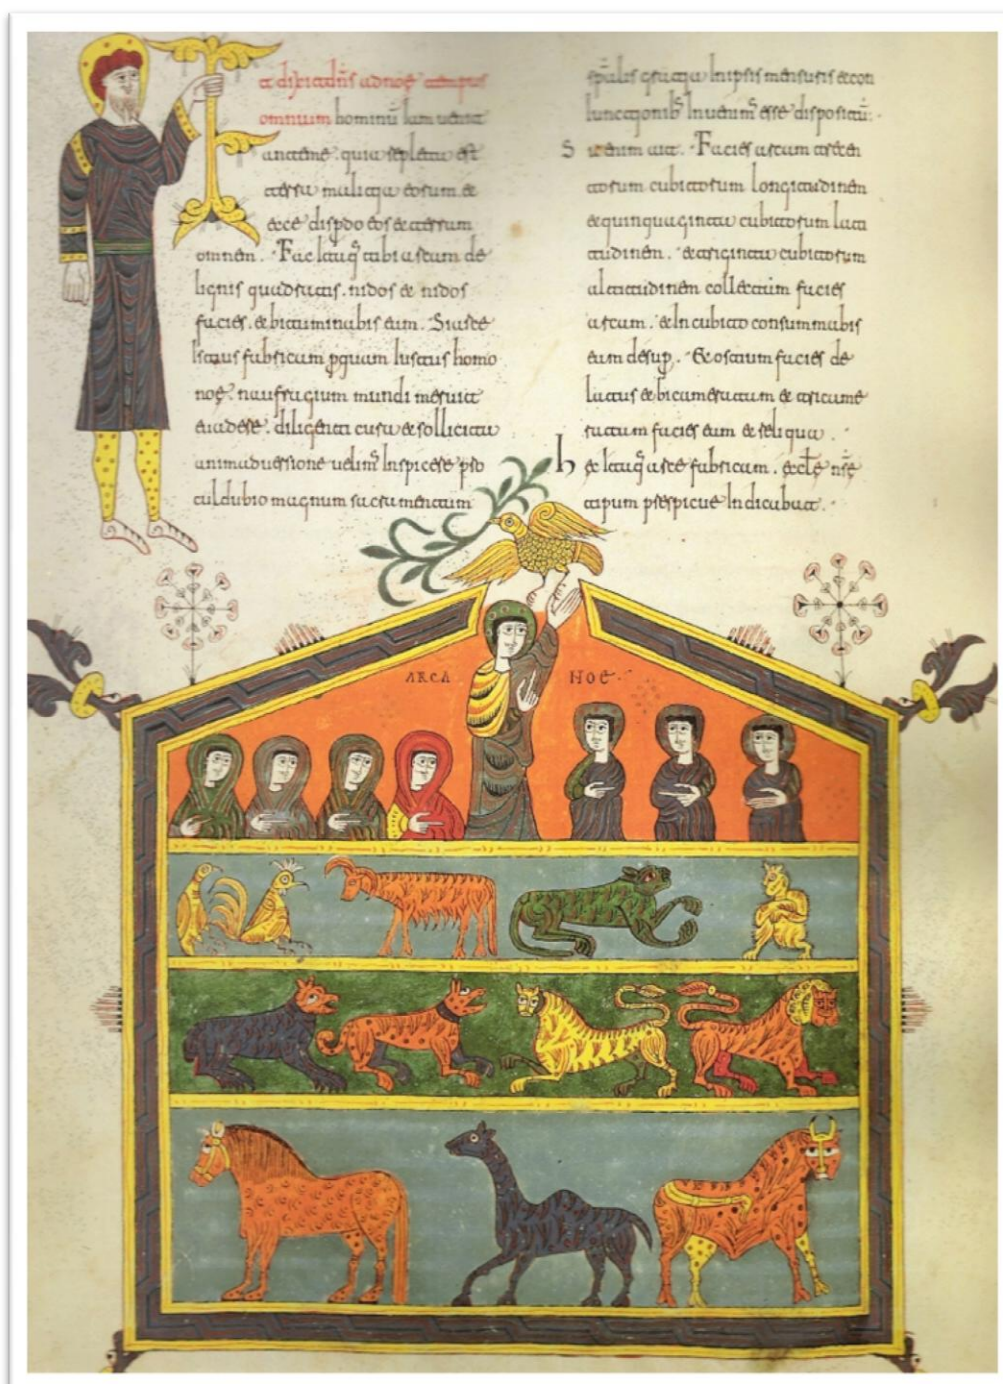 Et dixit dn̄s ad noe tempus
omnium hominū iam uenit
ante me. quia repleta est
terra malitia eorum. &
ecce disꝑdo eos & terram
omnem. Fac itaq̄ tibi arcam de
lignis quadratis. nidos & nidos
facies. & bituminabis eam. Si arce
Istius fabricam ꝑ quam Iustus homo
noe. naufragium mundi meruit
euadere. diligenti cura & sollicita
animaduersione uelim̄ Inspicere pro
culdubio magnum sacramentum
sp̄alis gratia In ipsis mensuris & con
Iunctionib̄ Inuenim̄ esse dispositū.
Sic enim ait. Facies arcam trecen
torum cubitorum longitudinem
& quinquaginta cubitorum lati
tudinem. & triginta cubitorum
altitudinem collectam facies
arcam. & In cubito consummabis
eam desuꝑ. & ostium facies de
latus & bicameratam & tricame
ratam facies eam & reliqua.
hec Itaq̄ arce fabricam. eccl̄e nr̄e
tipum prespicue Indicabat.
ARCA NOE